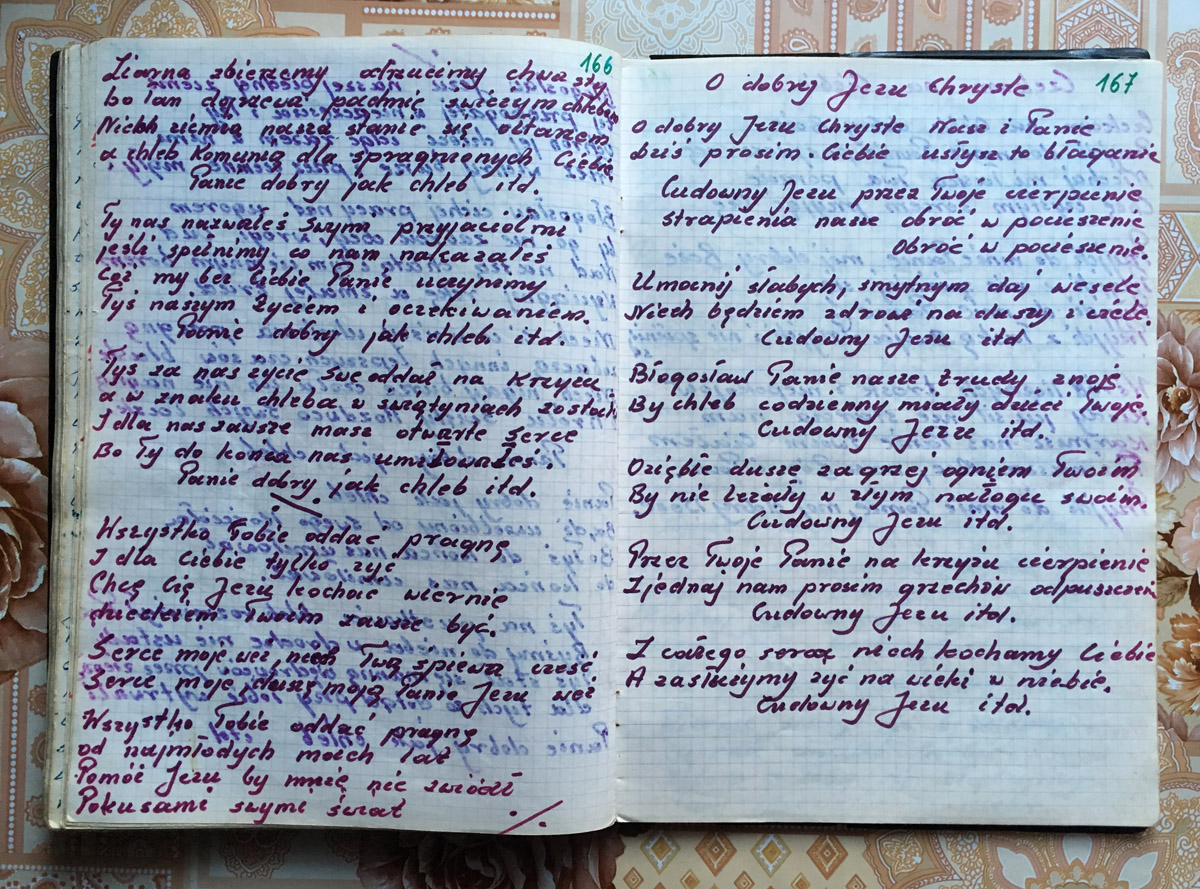 166
Ziarna zbierzemy odrzucimy chwasty
bo łan dojrzewa pachnie świeżym chlebem
Niech ziemia nasza stanie się ołtarzem
a chleb Komunią dla spragnionych Ciebie
Panie dobry jak chleb itd.
Ty nas nazwałeś swymi przyjaciółmi
jeśli spełnimy co nam nakazałeś
Cóż my bez Ciebie Panie uczynimy
Tyś naszym życiem i oczekiwaniem.
Panie dobry jak chleb itd.
Tyś za nas życie swe oddał na Krzyżu
a w znaku chleba w świątyniach został
I dla nas zawsze masz otwarte serce
Bo Ty do końca nas umiłowałeś.
Panie dobry jak chleb itd.
Wszystko Tobie oddać pragnę
I dla Ciebie tylko żyć
Chcę Cię Jezu kochać wiernie
dzieckiem Twoim zawsze być.
Serce moje weź, niech Twą śpiewa cześć
Serce moje, duszę moją Panie Jezu weź
Wszystko Tobie oddać pragnę
od najmłodych moich lat
Pomóż Jezu by mnie nie zwiódł
Pokusami swymi świat
167
O dobry Jezu Chryste
O dobry Jezu Chryste Nasz i Panie
Dziś prosim Ciebie usłysz to błaganie
Cudowny Jezu przez Twoje cierpienie
strapienia nasze obróć w pocieszenie
Obróć w pocieszenie.
Umocnij słabych, smutnym daj wesele
Niech będziem zdrowi na duszy i ciele.
Cudowny Jezu itd
Błogosław Panie nasze trudy, znoje
By chleb codzienny miały dzieci Twoje.
Cudowny Jezu itd.
Oziębłe dusze zagrzej ogniem Twoim
By nie leżały w złym nałogu swoim.
Cudowny Jezu itd.
Przez Twoje Panie na krzyżu cierpienie
Zjednaj nam prosim grzechów odpuszczen
Cudowny Jezu itd.
Z całego serca niech kochamy Ciebie
A zasłużymy żyć na wieki w niebie.
Cudowny Jezu itd.